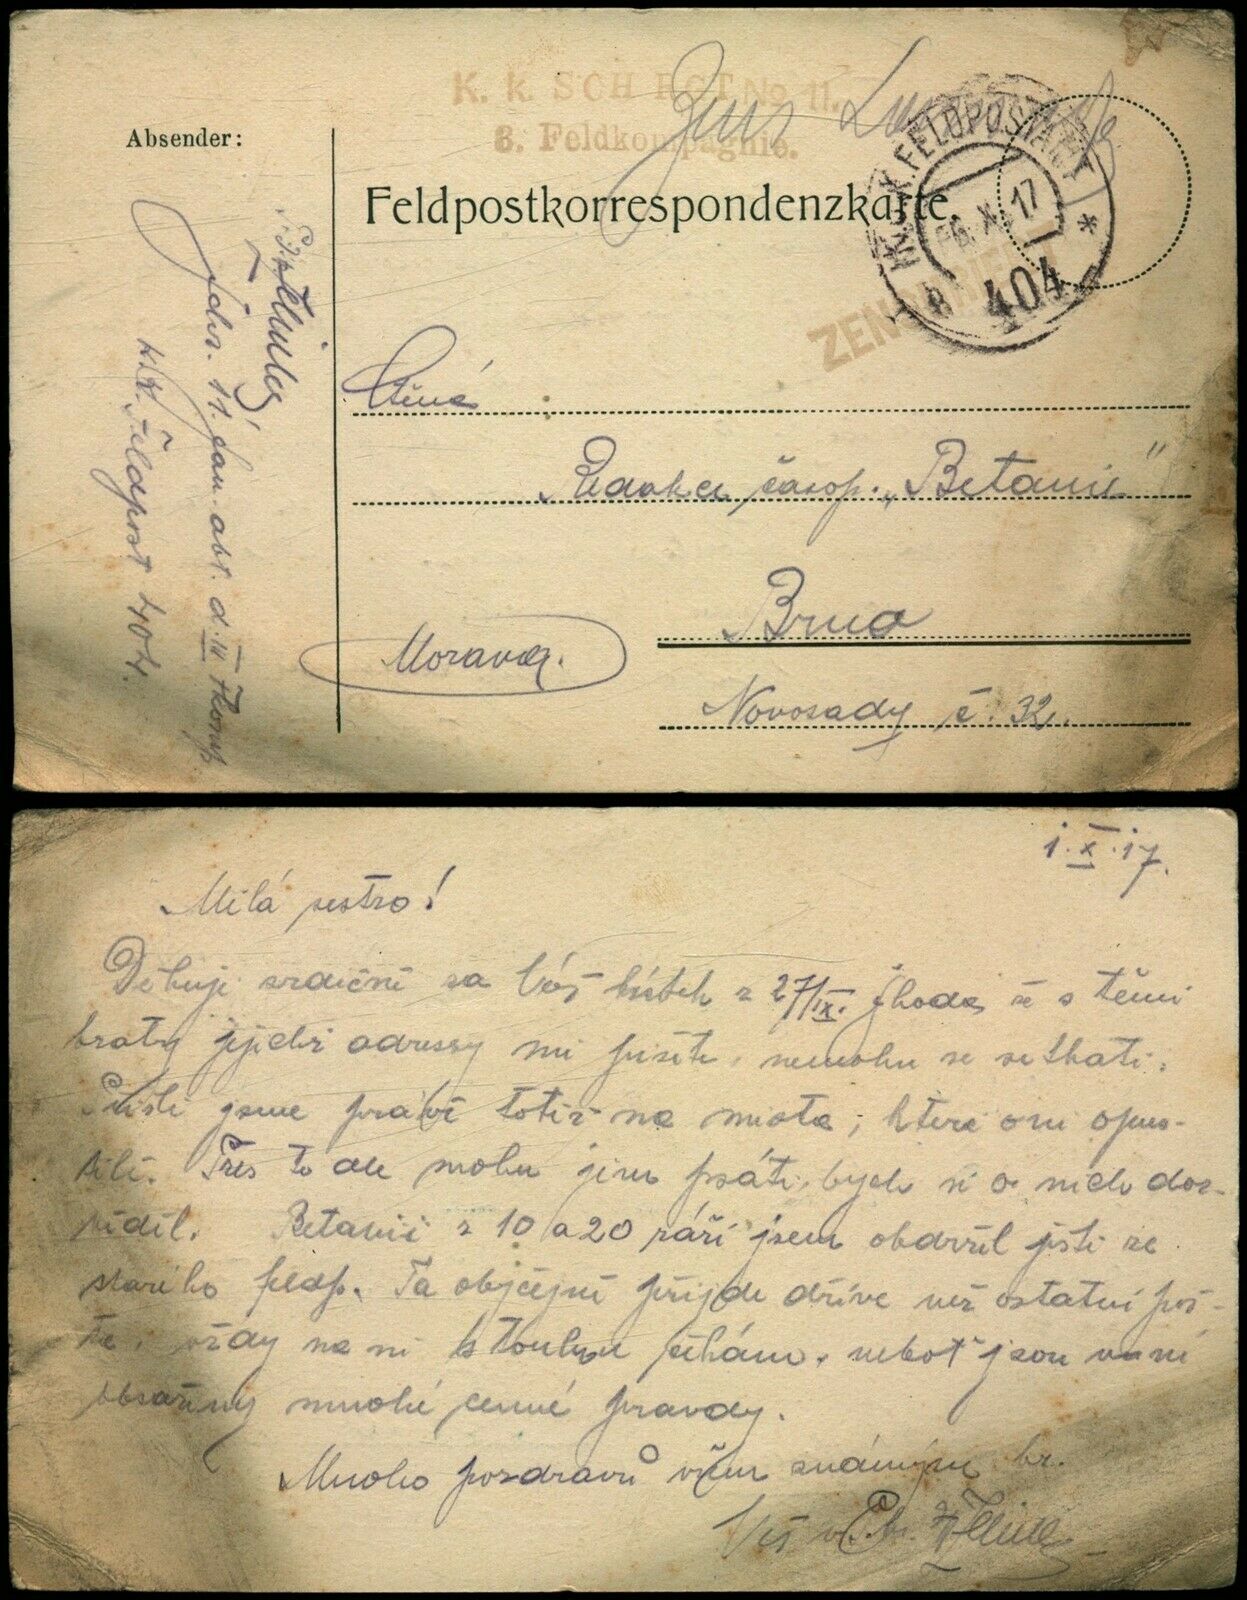 K. k. SCH. RGT No 11.
8. Feldkompagnie.
Absender:
Feldpostkorrespondenzkarte
K.u.K. FELDPOSTAMT
6. X. 17
404
ZENSURIERT
Ctěné
Redakci časop. „Betanie"
Brno
Morava.
Novosady č. 32.
11. san. abt. d.
K.K. Feldpost 404.
1.X.17.
Milá sestro!
Děkuji srdečně za Váš lístek z 27/IX. Škoda, že s těmi
bratry jejichž adressy mi píšete, nemohu se setkati.
Přišli jsme právě totiž na místa, která oni opus-
tili. Přes to ale mohu jim psáti, bych si o nich doz-
věděl. Betanii z 10 a 20 září jsem obdržel ještě ze
starého feldp. Ta obyčejně přijde dříve než ostatní poš-
ta, vždy na ni s touhou čekám, neboť jsou v ní
obsaženy mnohé cenné pravdy.
Mnoho pozdravů všem známým br.
Váš v